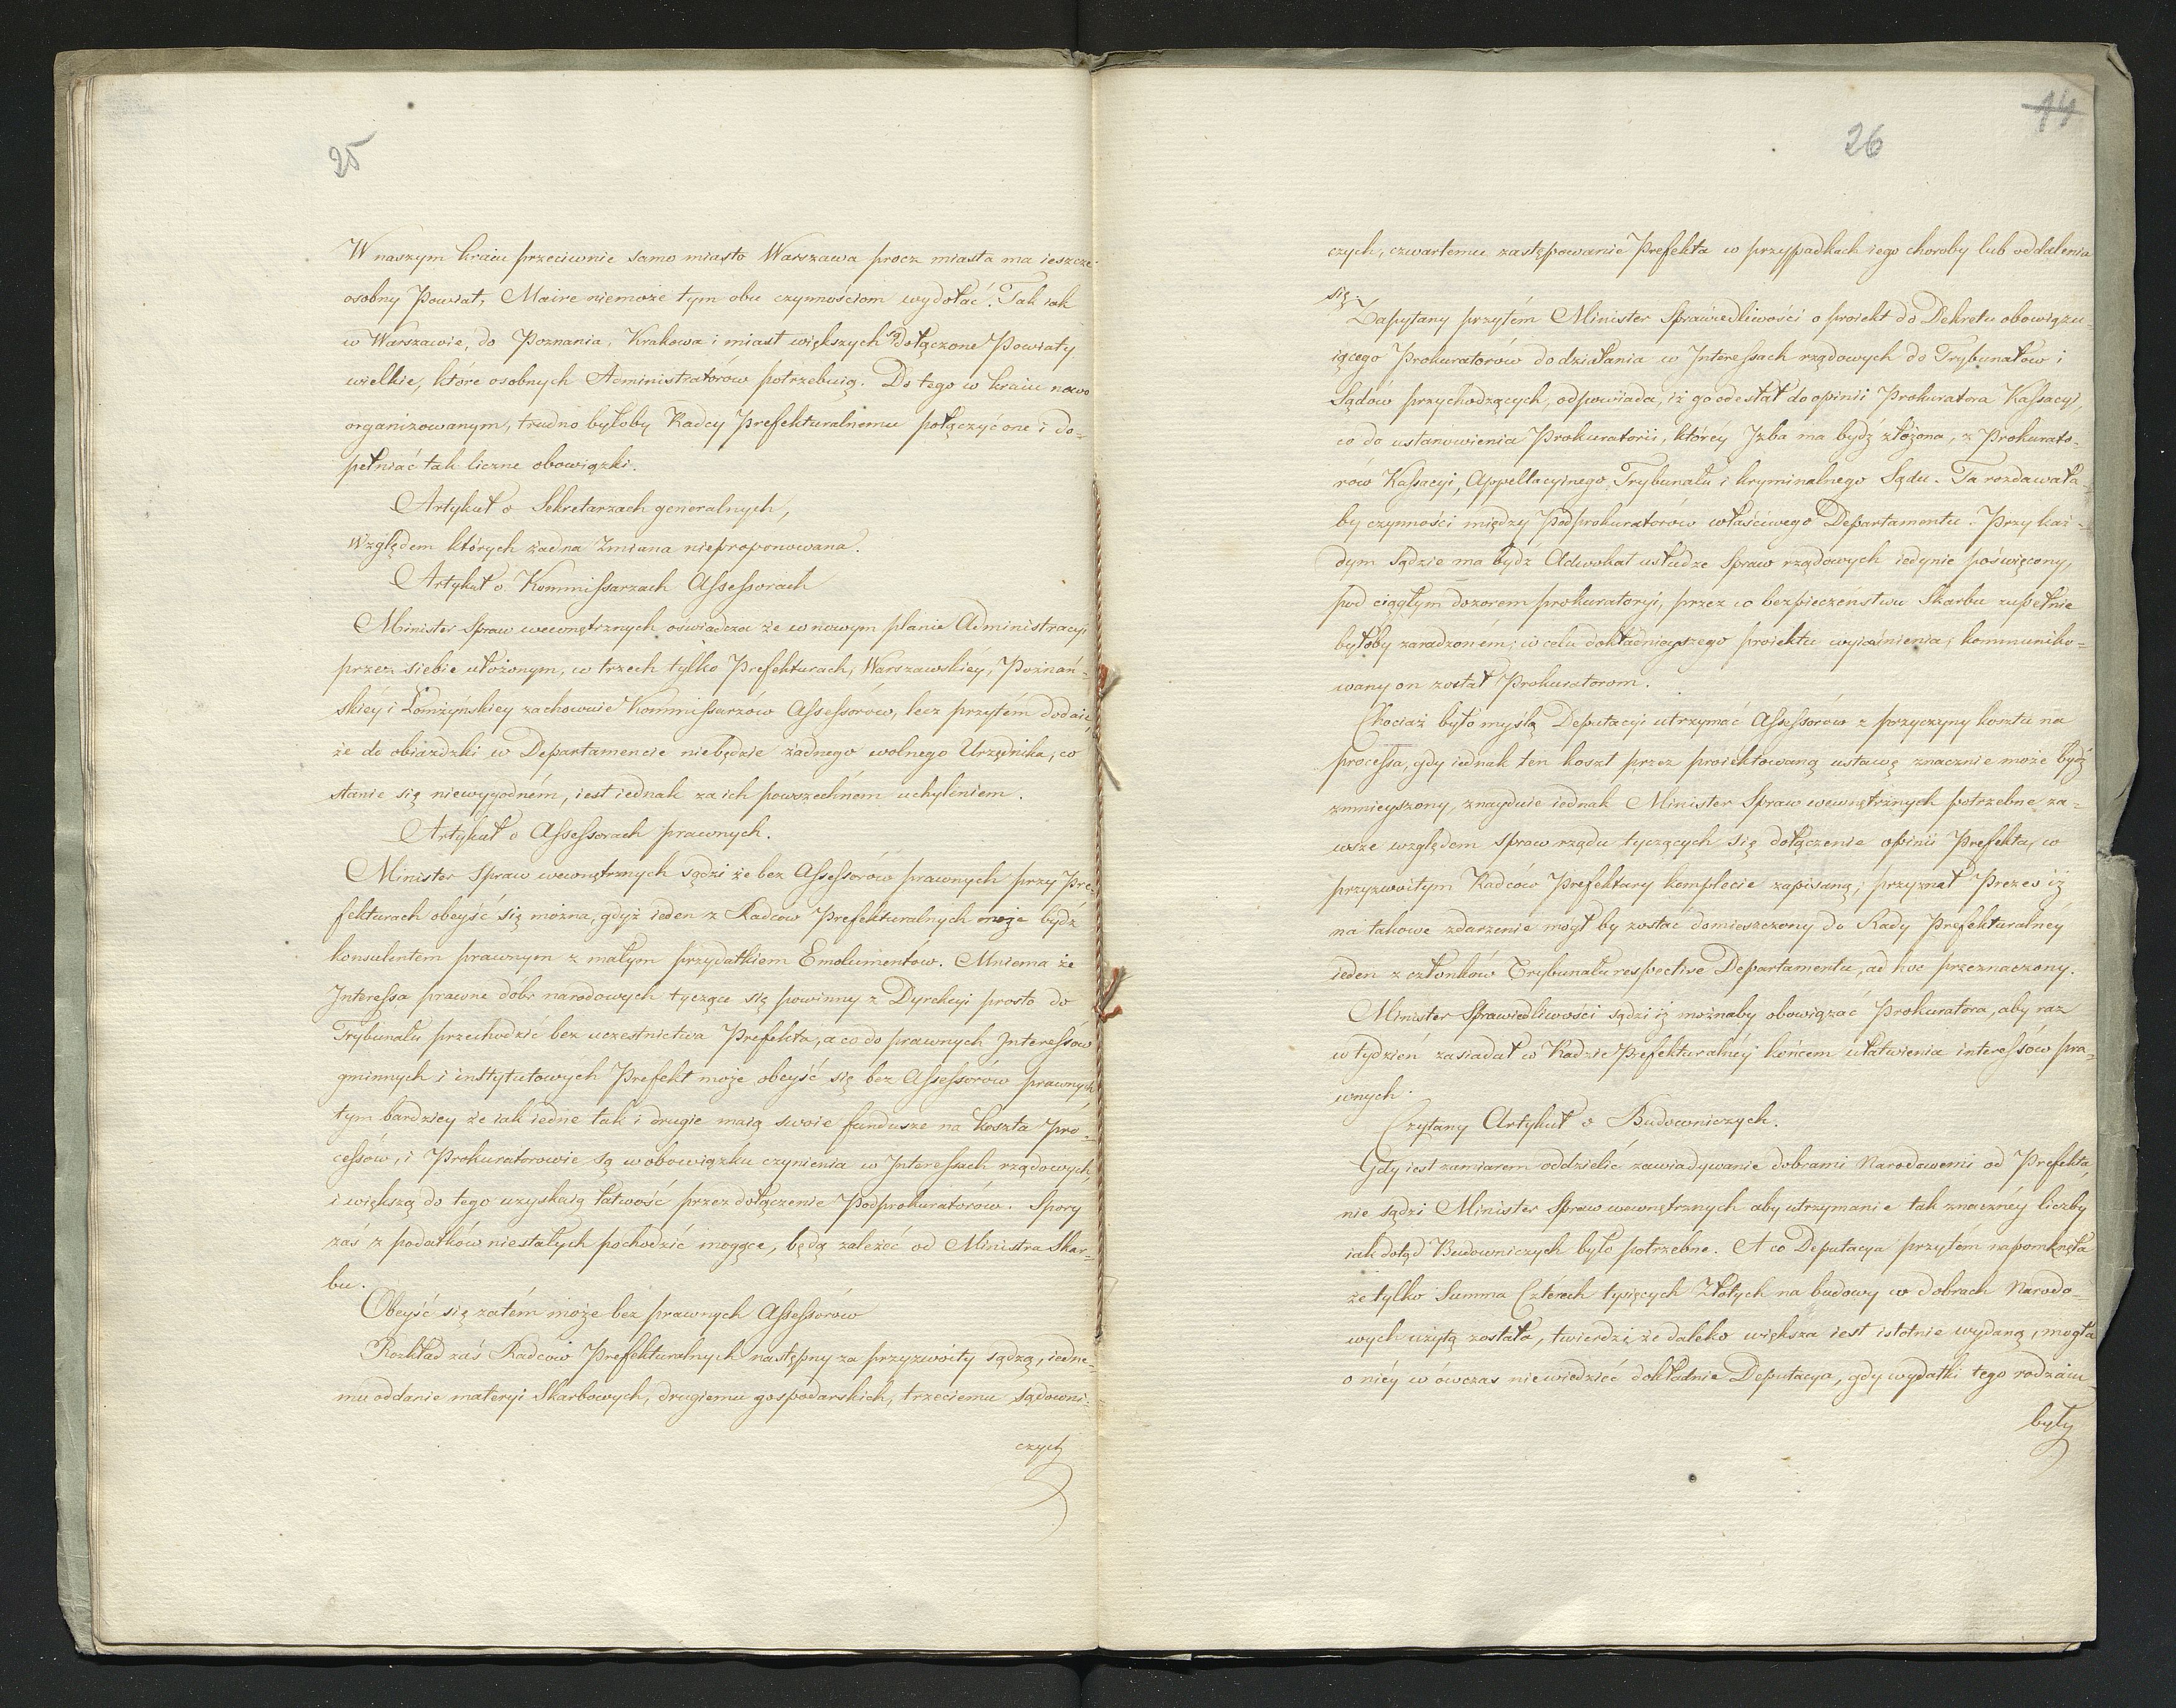 25
W naszym kraiu przeciwnie samo miasto Warszawa procz miasta ma ieszcze
osobny Powiat, Maire niemoże tym obu czynnościom wydołać. Tak iak
w Warszawie, do Poznania, Krakowa i miast większych są dołączone Powiaty
wielkie, które osobnych Administratorów potrzebuią. Do tego w kraiu nowo
organizowanym, trudno byłoby Radcy Prefekturalnemu połączyć one i do-
pełniać tak liczne obowiązki.
Artykuł o Sekretarzach generalnych,
Względem których żadna Zmiana nieproponowana.
Artykuł o Kommissarzach Assessorach
Minister Spraw wewnętrznych oświadcza że w nowym planie Administracyi
przez siebie ułożonym, w trzech tylko Prefekturach, Warszawskiéy, Poznań-
skiéy i Łomżyńskiéy zachowuie Kommissarzów Assessorów, lecz przytém dodaie,
że do obiazdzki w Departamencie niebędzie żadnego wolnego Urzędnika, co
stanie się niewygodném, iest iednak za ich powszechnem uchyleniem.
Artykuł o Assessorach prawnych.
Minister Spraw wewnętrznych sądzi że bez Assessorów prawnych przy Pre-
fekturach obeyść się można, gdyż ieden z Radcow Prefekturalnych może bydź
konsulentem prawnym z małym przydatkiem Emolumentów. Mniema że
Interessa prawne dóbr narodowych tyczące się powinny z Dyrekcyi prosto do
Trybunału przechodzić bez uczestnictwa Prefekta, a co do prawnych Interessów
gminnych i instytutowych Prefekt może obeyść się bez Assessorów prawnych
tym bardziey że iak iedne tak i drugie maią swoie fundusze na koszta Pro-
cessów, i Prokuratorowie są w obowiązku czynienia w Interessach rządowych,
i większą do tego uzyskaią łatwość przez dołączenie Podprokuratorów. Spory
zaś z podatków niestałych pochodzić mogące, będą zależeć od Ministra Skar-
bu.
Obeyść się zatém może bez prawnych Assessorów
Rozkład zaś Radcow Prefekturalnych następny za przyzwoity sądzą, iedne-
mu oddanie materyi Skarbowych, drugiemu gospodarskich, trzeciemu sądowni-
czych
14
26
czych, czwartemu zastępowanie Prefekta w przypadkach iego choroby lub oddalenia
się.
Zapytany przytém Minister Sprawiedliwości o proiekt do Dekretu obowiązu-
iącego Prokuratorów do działania w Interessach rządowych do Trybunałów i
Sądów przychodzących, odpowiada, iż go odesłał do opinii Prokuratora Kassacyi,
co do ustanowienia Prokuratorii, któréy Izba ma bydź złożona, z Prokurato-
rów Kassacyi, Appellacyinego Trybunału i kryminalnego Sądu. Ta rozdawała-
by czynności między Podprokuratorów właściwego Departamentu. Przy każ-
dym Sądzie ma bydź Adwokat usłudze Spraw rządowych iedynie poświęcony,
pod ciągłym dozorem prokuratoryi, przez co bezpieczenstwu Skarbu zupełnie
byłoby zaradzonem; w celu dokładnieyszego proiektu wyiaśnienia, kommuniko-
wany on został Prokuratorom.
Chociaż było myślą Deputacyi utrzymać Assessorów z przyczyny kosztu na
processa, gdy iednak ten koszt przez proiektowaną ustawę znacznie może bydź
zmnieyszony, znayduie iednak Minister Spraw wewnętrznych potrzebne za-
wsze względem spraw rządu tyczących się dołączenie opinii Prefekta, w
przyzwoitym Radców Prefektury komplecie zapisaną; przyznał Prezes iż
na takowe zdarzenie mógł by zostać domieszczony do Rady Prefekturalnéy
ieden z członków Trybunału respective Departamentu, ad hoc przeznaczony.
Minister Sprawiedliwości sądzi iż możnaby obowiązać Prokuratora, aby raz
w tydzień zasiadał w Radzie Prefekturalnéy końcem ułatwienia interessów pra-
wnych.
Czytany Artykuł o Budowniczych.
Gdy iest zamiarem oddzielić zawiadywanie dobrami Narodowemi od Prefekta,
nie sądzi Minister Spraw wewnętrznych aby utrzymanie tak znacznéy liczby
iak dotąd Budowniczych było potrzebne. A co Deputacya przytém napomknęła
że tylko Summa Czterech tysięcy Złotych na budowy w dobrach Narodo-
wych użytą została, twierdzi, że daleko większa iest istotnie wydaną, mogła
o niéy w ówczas niewiedzieć dokładnie Deputacya, gdy wydatki tego rodzaiu
były